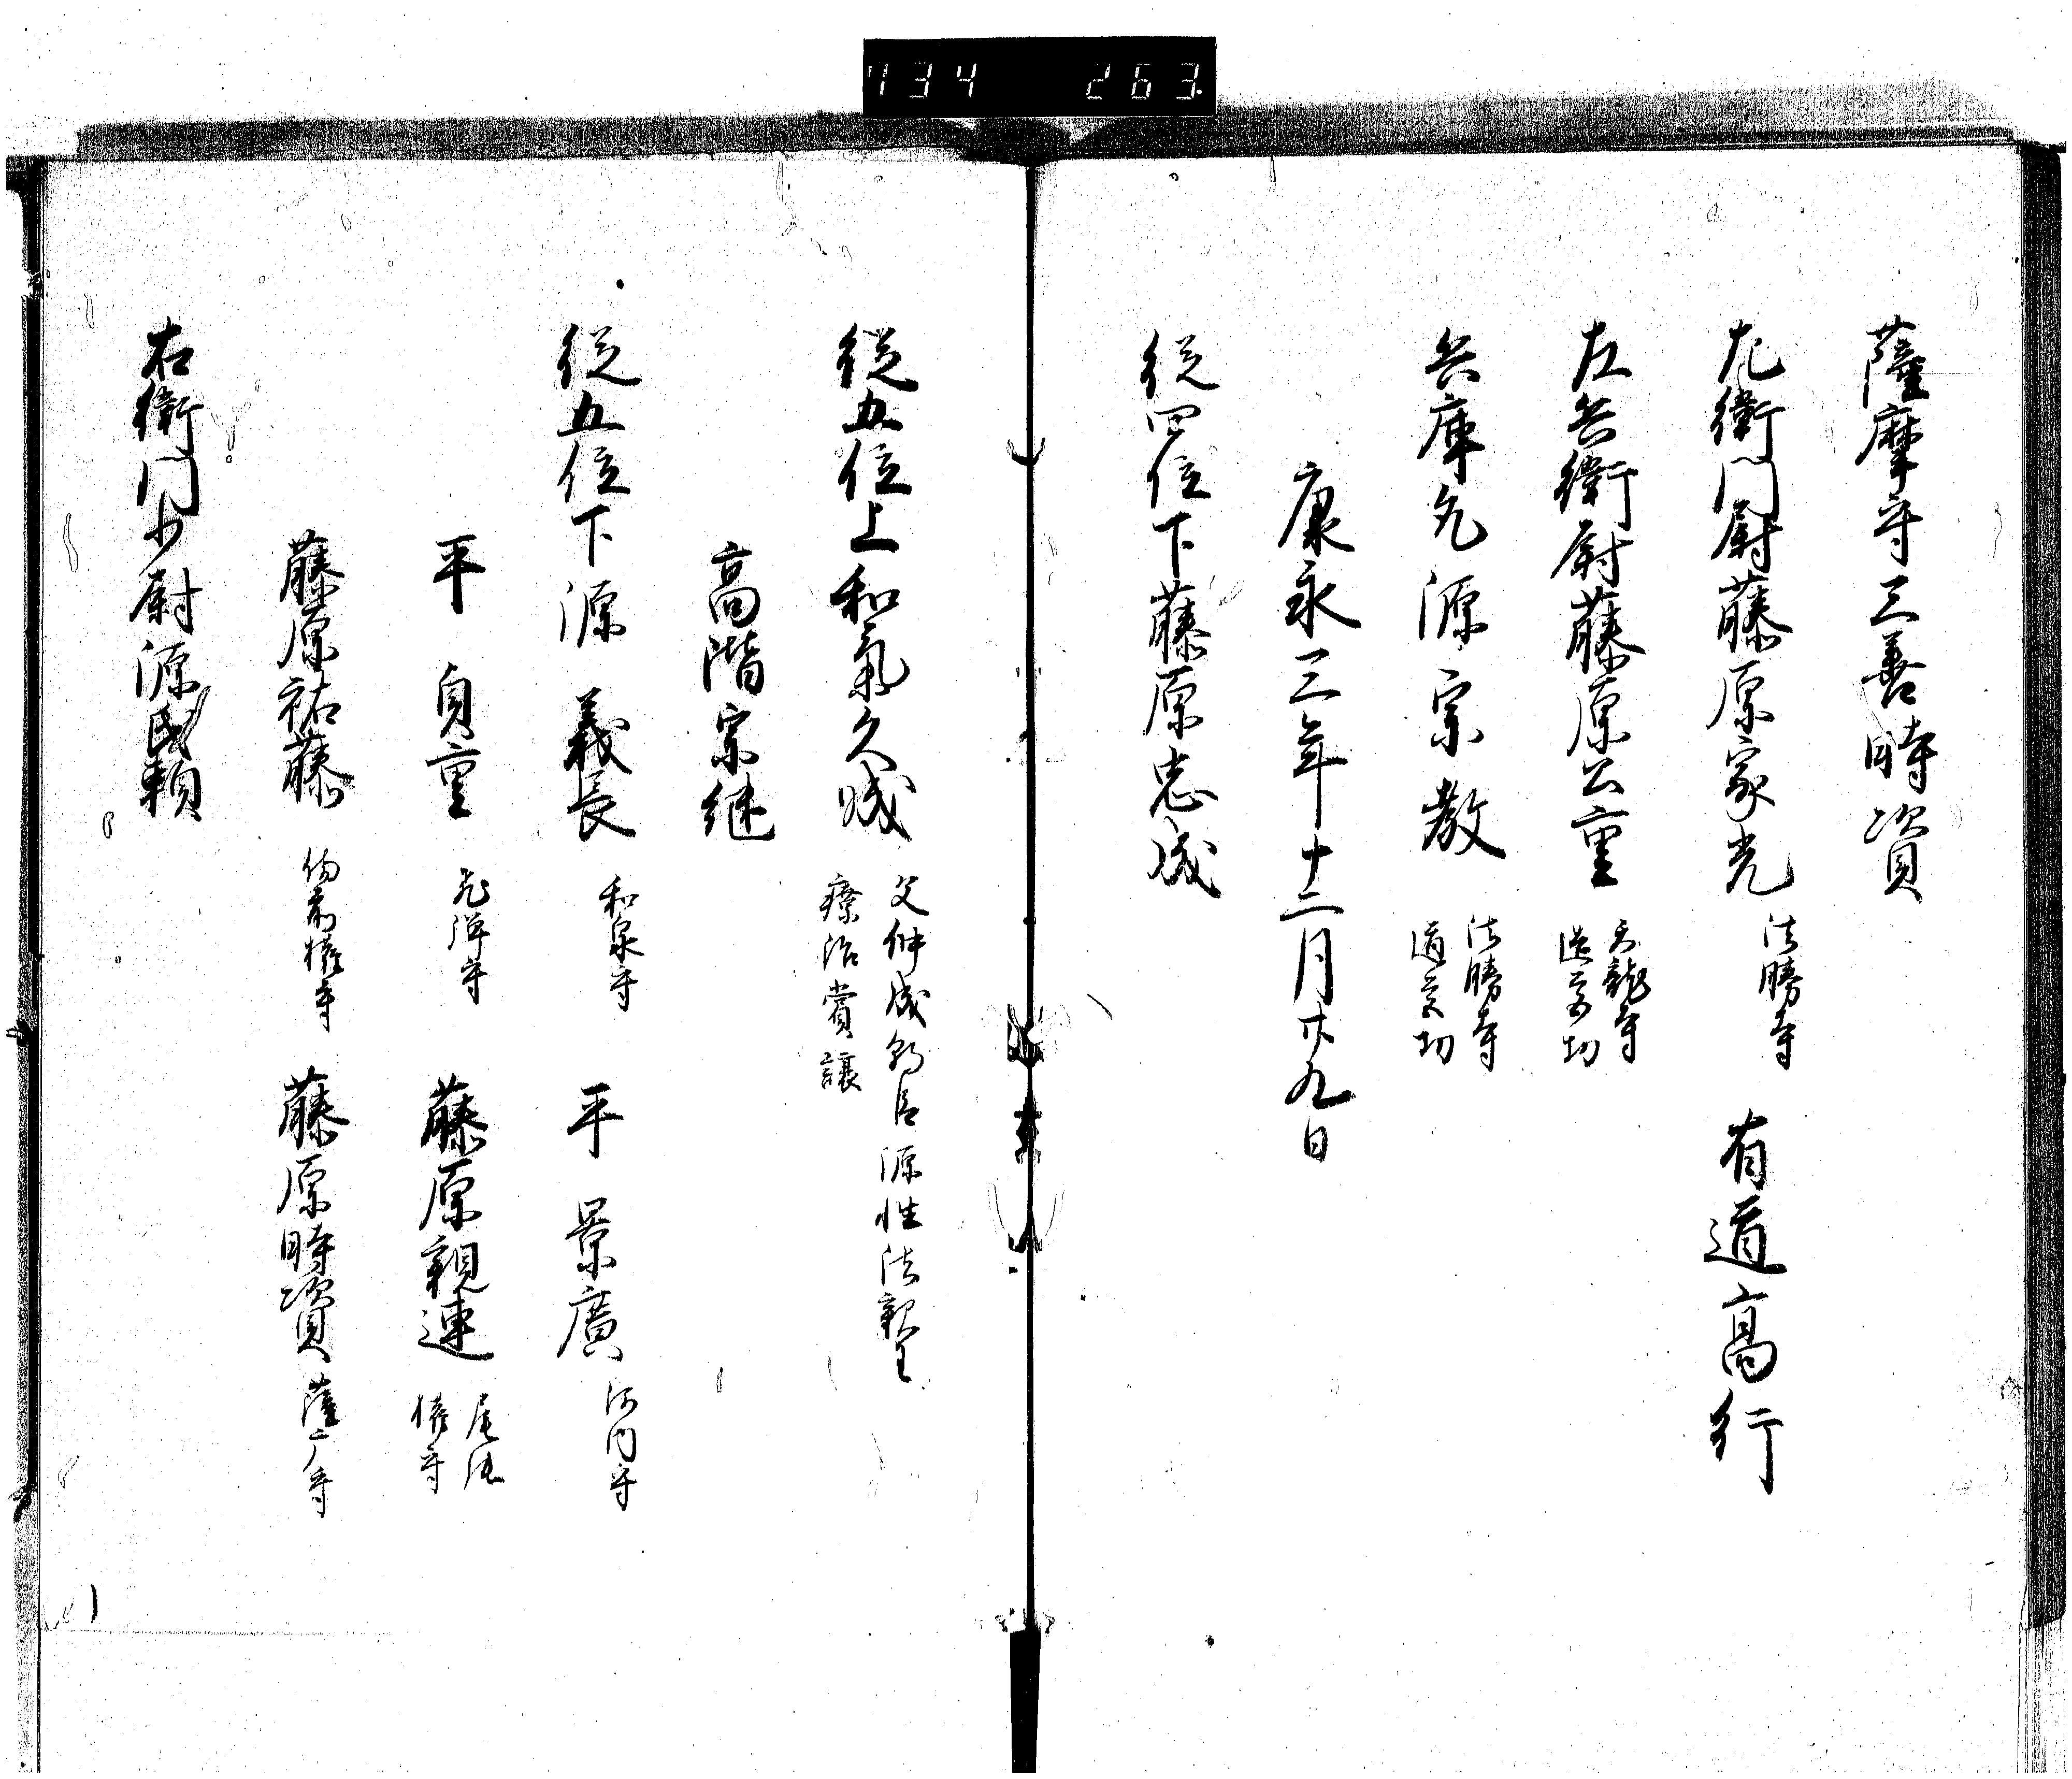 734 263
薩摩守三善時資
左衛門尉藤原家光 法勝寺 有道高行
左兵衛尉藤原公重 天龍寺
造営功
兵庫允源宗教 法勝寺
造営功
康永三年十二月廿九日
従四位下藤原忠成
従五位上和氣久成 父仲成朝臣源性法親王
療治賞譲
高階宗継
従五位下源義長 和泉守 平景廣 河内守
平貞重 藤原親連 尾張
権守
藤原祐藤 備前権守 藤原時資 薩广守
右衛門少尉源氏頼